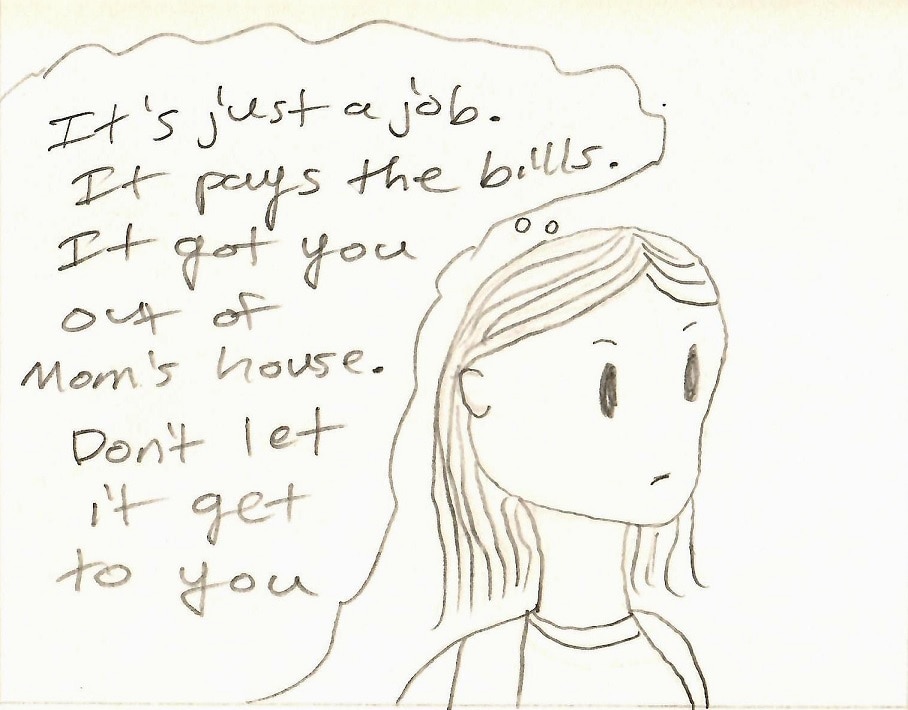 It's just a job.
It pays the bills.
It got you
out of
Mom's house.
Don't let
it get
to you